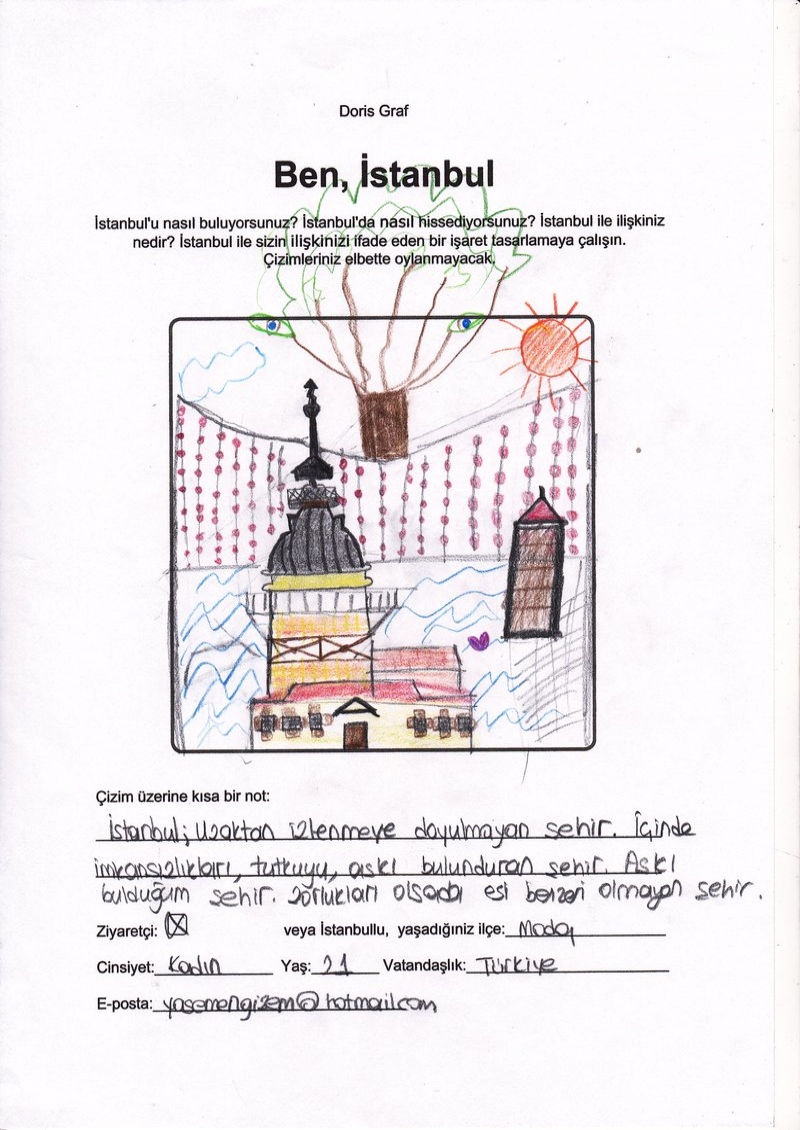 Doris Graf
Ben, İstanbul
İstanbul'u nasıl buluyorsunuz? İstanbul'da nasıl hissediyorsunuz? İstanbul ile ilişkiniz
nedir? İstanbul ile sizin ilişkinizi ifade eden bir işaret tasarlamaya çalışın.
Çizimleriniz elbette oylanmayacak.
Çizim üzerine kısa bir not:
İstanbul; Uzaktan izlenmeye doyulmayan şehir. İçinde
imkansızlıkları, tutkuyu, aşkı bulunduran şehir. Aşkı
bulduğum şehir. Zorlukları olsada eşi benzeri olmayan şehir.
Ziyaretçi: ☒ veya İstanbullu, yaşadığınız ilçe: Moda
Cinsiyet: Kadın Yaş: 21 Vatandaşlık: Türkiye
E-posta: yasemengizem@hotmail.com